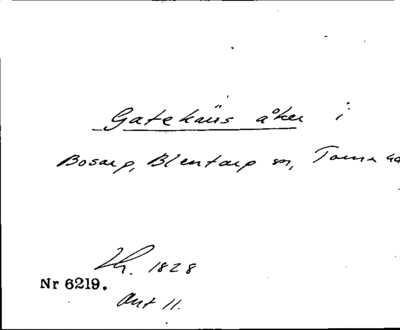 Gatehüs åker i
Bosarp, Blentarp sn, Torna
1828
Nr 6219.
Ant 11.